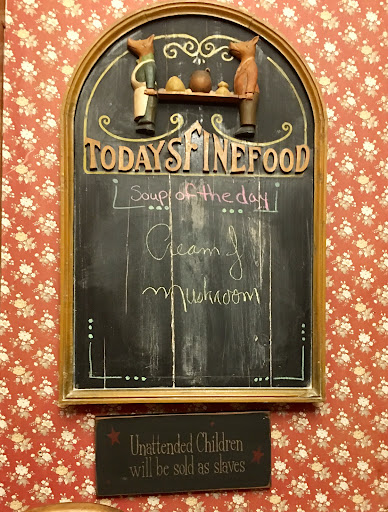 TODAYS FINE FOOD
Soup of the day
Cream of
Mushroom
Unattended Children
will be sold as slaves